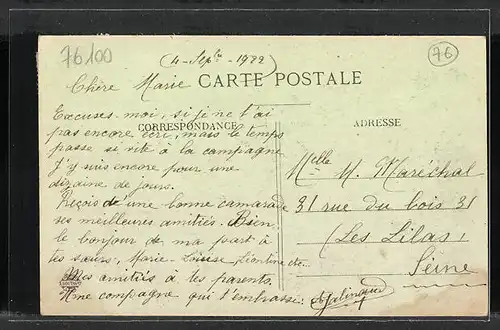 76100
(4-Septre-1922)
76
Chère Marie
CARTE POSTALE
Excuses-moi, si je ne t'ai
pas encore écrit, mais le temps
CORRESPONDANCE
passe si vite à la campagne
J'y suis encore pour une
dizaine de jours.
Reçois de une bonne camarade
ses meilleures amitiés. Bien
le bonjour de ma part à
tes sœurs, Marie-Louise, Léontine etc...
Mes amitiés à tes parents.
compagne qui t'embrasse:
ADRESSE
Melle M. Maréchal
31 rue du bois 31
(Les Lilas)
Seine